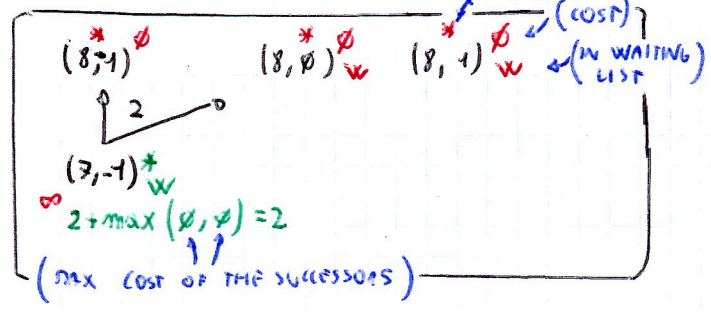 (COST)
* ∅ * ∅ * ∅
(8,-1) (8,∅) W (8, 1) W (IN WAITING LIST)
2
(7,-1) * W
∞ 2+max (∅,∅) = 2
(MAX COST OF THE SUCCESSORS)